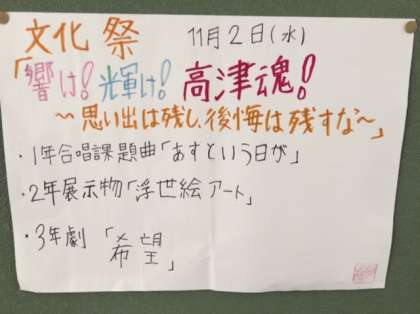 文化祭 11月2日(水)
「響け!輝け!高津魂!
～思い出は残し、後悔は残すな～」
・1年合唱課題曲「あすという日が」
・2年展示物「浮世絵アート」
・3年劇「希望」